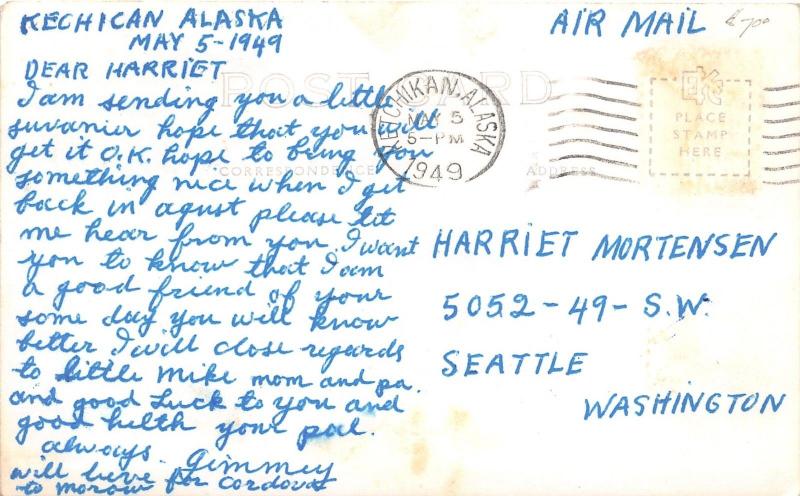 KECHICAN ALASKA
MAY 5-1949
DEAR HARRIET
I am sending you a little
suvanier hope that you will
get it O.K. hope to bring you
something nice when I get
back in agust please let
me hear from you. I want
you to know that I am
a good friend of your
some day you will know
better I will close regards
to little Mike mom and pa.
and good Luck to you and
good helth your pal.
always Gimmey
will leve
to morow for Cordova
AIR MAIL
POST CARD
KETCHIKAN, ALASKA
MAY 5
5-PM
1949
EKC
PLACE
STAMP
HERE
CORRESPONDENCE
ADDRESS
HARRIET MORTENSEN
5052-49-S.W.
SEATTLE
WASHINGTON